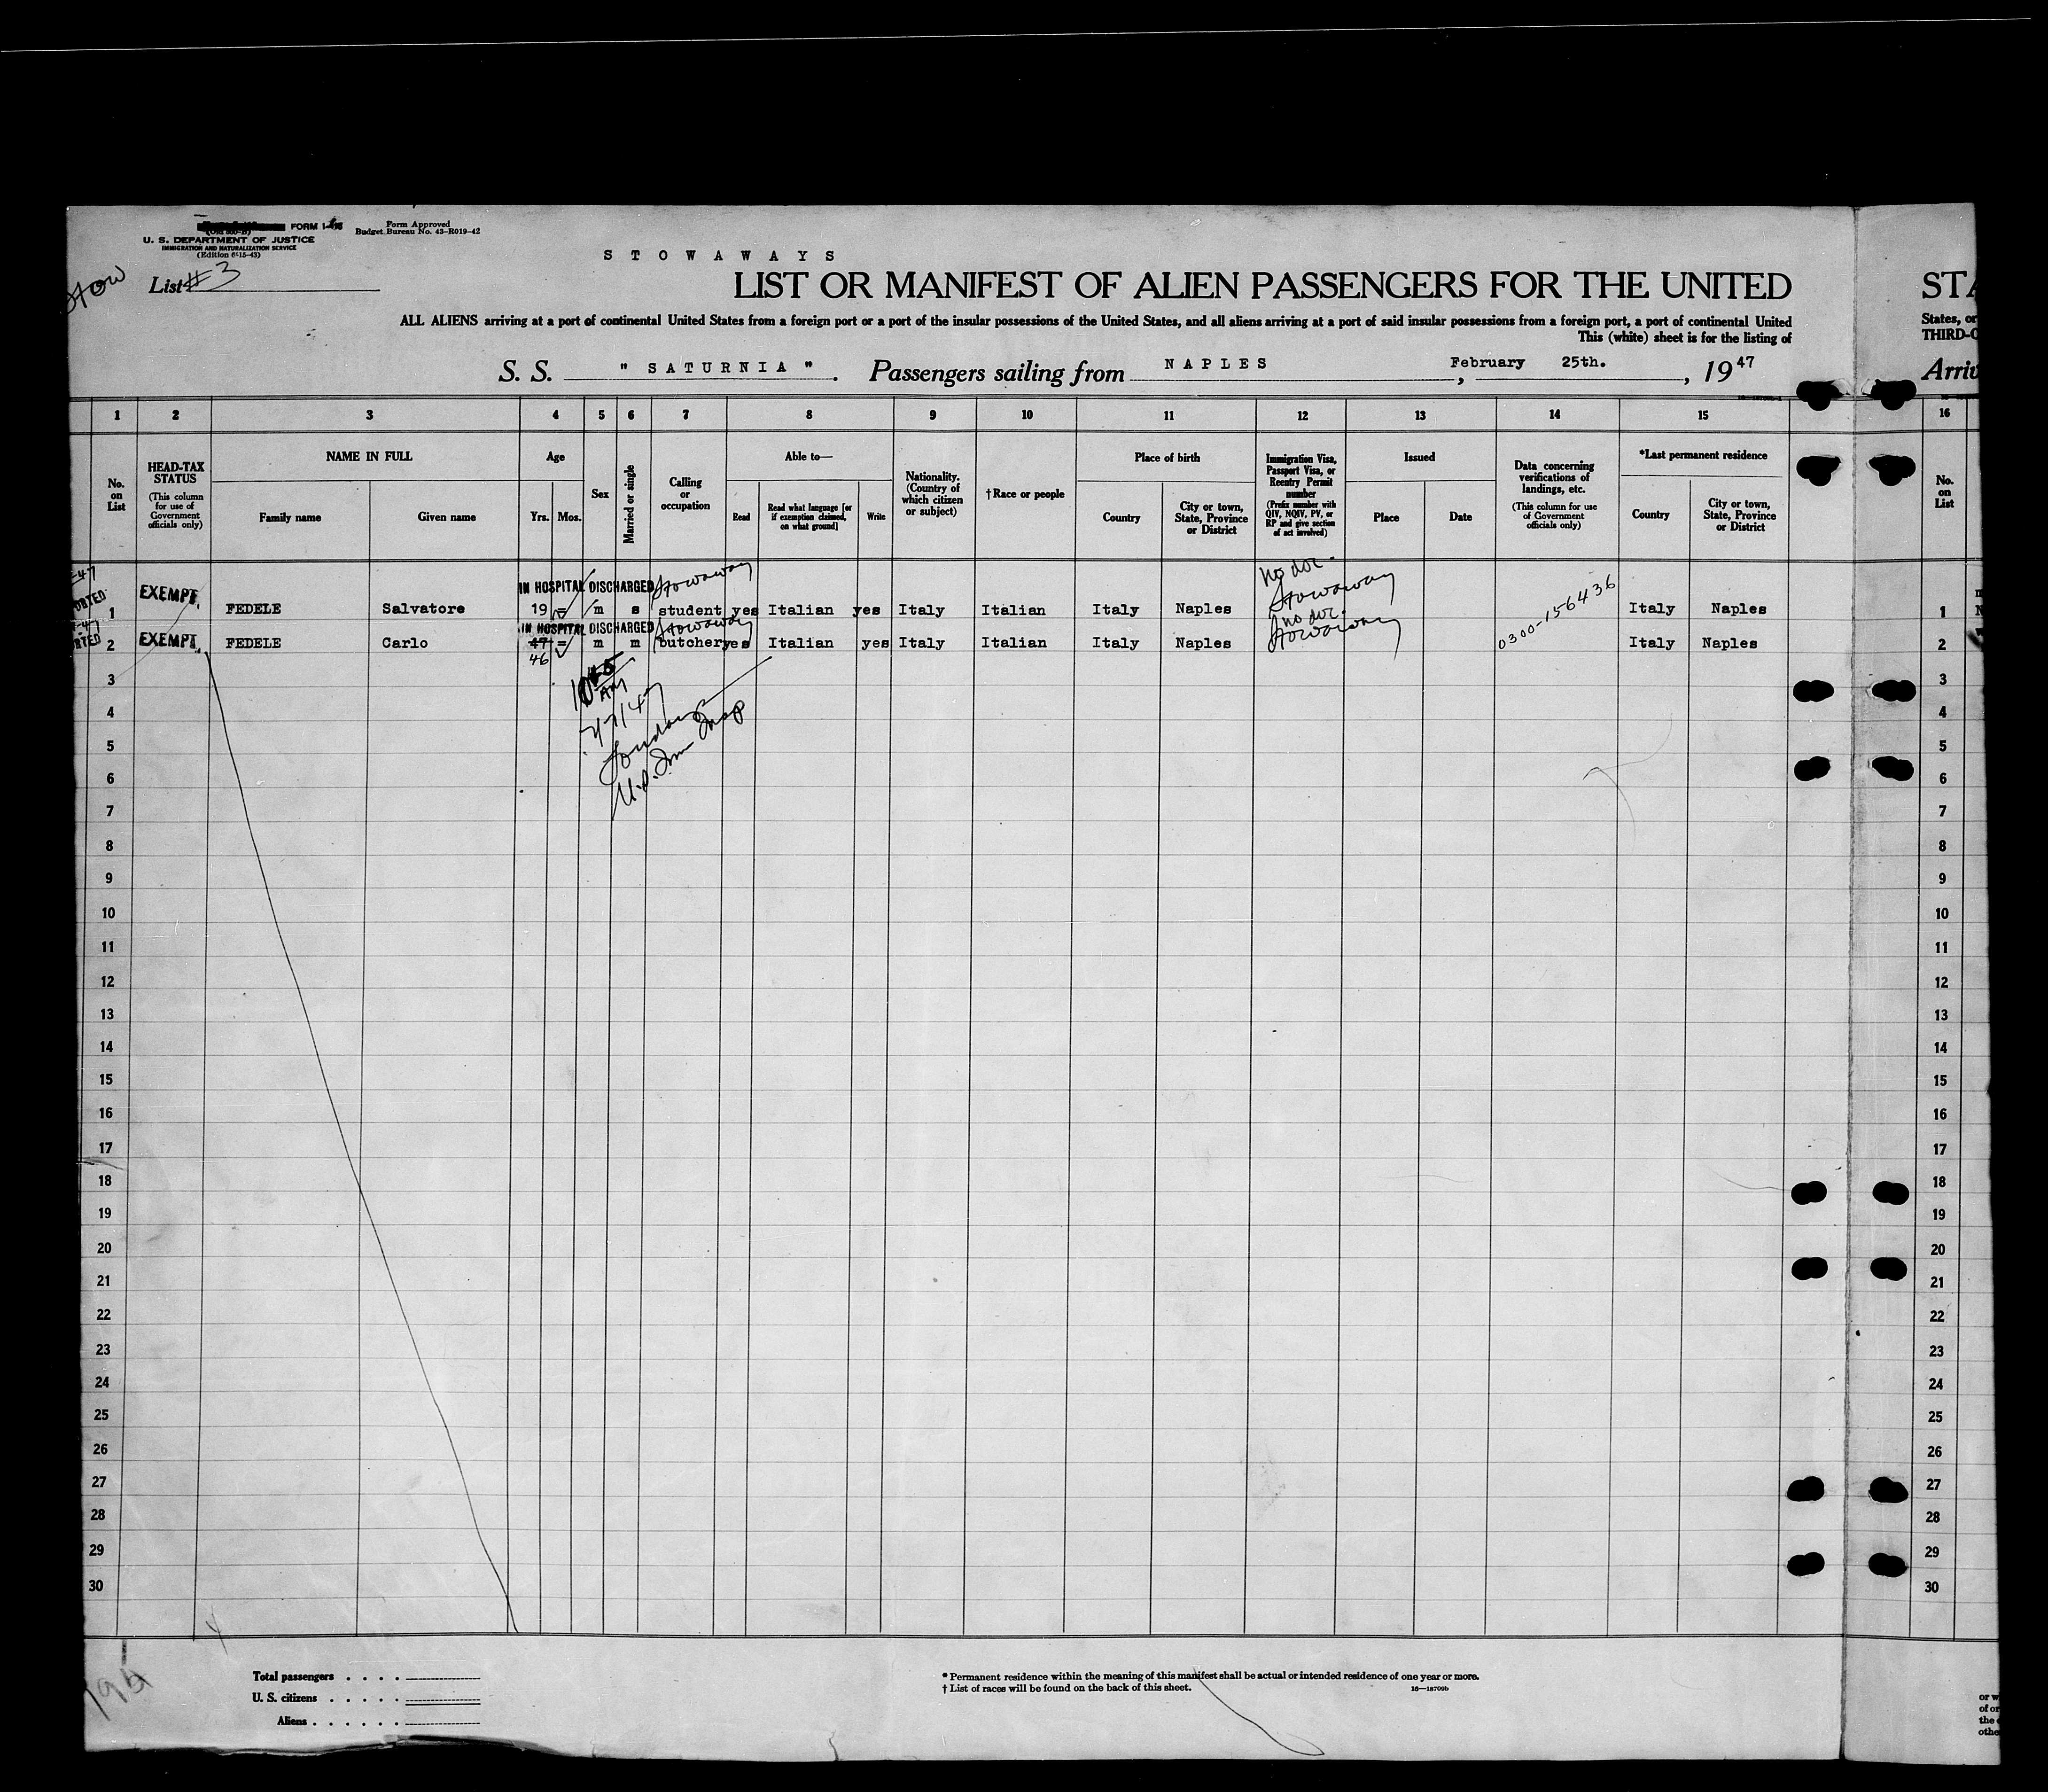 FORM I-415
(Old 500-B)
Form Approved
Budget Bureau No. 43-R019-42
U. S. DEPARTMENT OF JUSTICE
IMMIGRATION AND NATURALIZATION SERVICE
(Edition 6-15-43)
STOWAWAYS
Stow
List #3
LIST OR MANIFEST OF ALIEN PASSENGERS FOR THE UNITED
STA
ALL ALIENS arriving at a port of continental United States from a foreign port or a port of the insular possessions of the United States, and all aliens arriving at a port of said insular possessions from a foreign port, a port of continental United
States, or
This (white) sheet is for the listing of
THIRD-C
S. S. "SATURNIA". Passengers sailing from NAPLES February, 25th., 1947
Arriv
1 2 3 4 5 6 7 8 9 10 11 12 13 14 15 16
No. on List
HEAD-TAX STATUS (This column for use of Government officials only)
NAME IN FULL
Family name
Given name
Age
Yrs. Mos.
Sex
Married or single
Calling or occupation
Able to—
Read
Read what language [or if exemption claimed, on what ground]
Write
Nationality. (Country of which citizen or subject)
†Race or people
Place of birth
Country
City or town, State, Province or District
Immigration Visa, Passport Visa, or Reentry Permit number (Prefix number with QIV, NQIV, PV, or RP and give section of act involved)
Issued
Place
Date
Data concerning verifications of landings, etc. (This column for use of Government officials only)
*Last permanent residence
Country
City or town, State, Province or District
No. on List
IN HOSPITAL DISCHARGED Stowaway no doc. Stowaway
1 EXEMPT. FEDELE Salvatore 19 - m s student yes Italian yes Italy Italian Italy Naples Italy Naples 1
IN HOSPITAL DISCHARGED Stowaway no doc. Stowaway
2 EXEMPT. FEDELE Carlo 47 - m m butcher yes Italian yes Italy Italian Italy Naples 0300-156436 Italy Naples 2
46
AM
U.S. Imm Insp
3 3
4 4
5 5
6 6
7 7
8 8
9 9
10 10
11 11
12 12
13 13
14 14
15 15
16 16
17 17
18 18
19 19
20 20
21 21
22 22
23 23
24 24
25 25
26 26
27 27
28 28
29 29
30 30
Total passengers . . . .
U. S. citizens . . . . .
Aliens . . . . . .
* Permanent residence within the meaning of this manifest shall be actual or intended residence of one year or more.
† List of races will be found on the back of this sheet.
16—18709b
or w
of or
the
othe